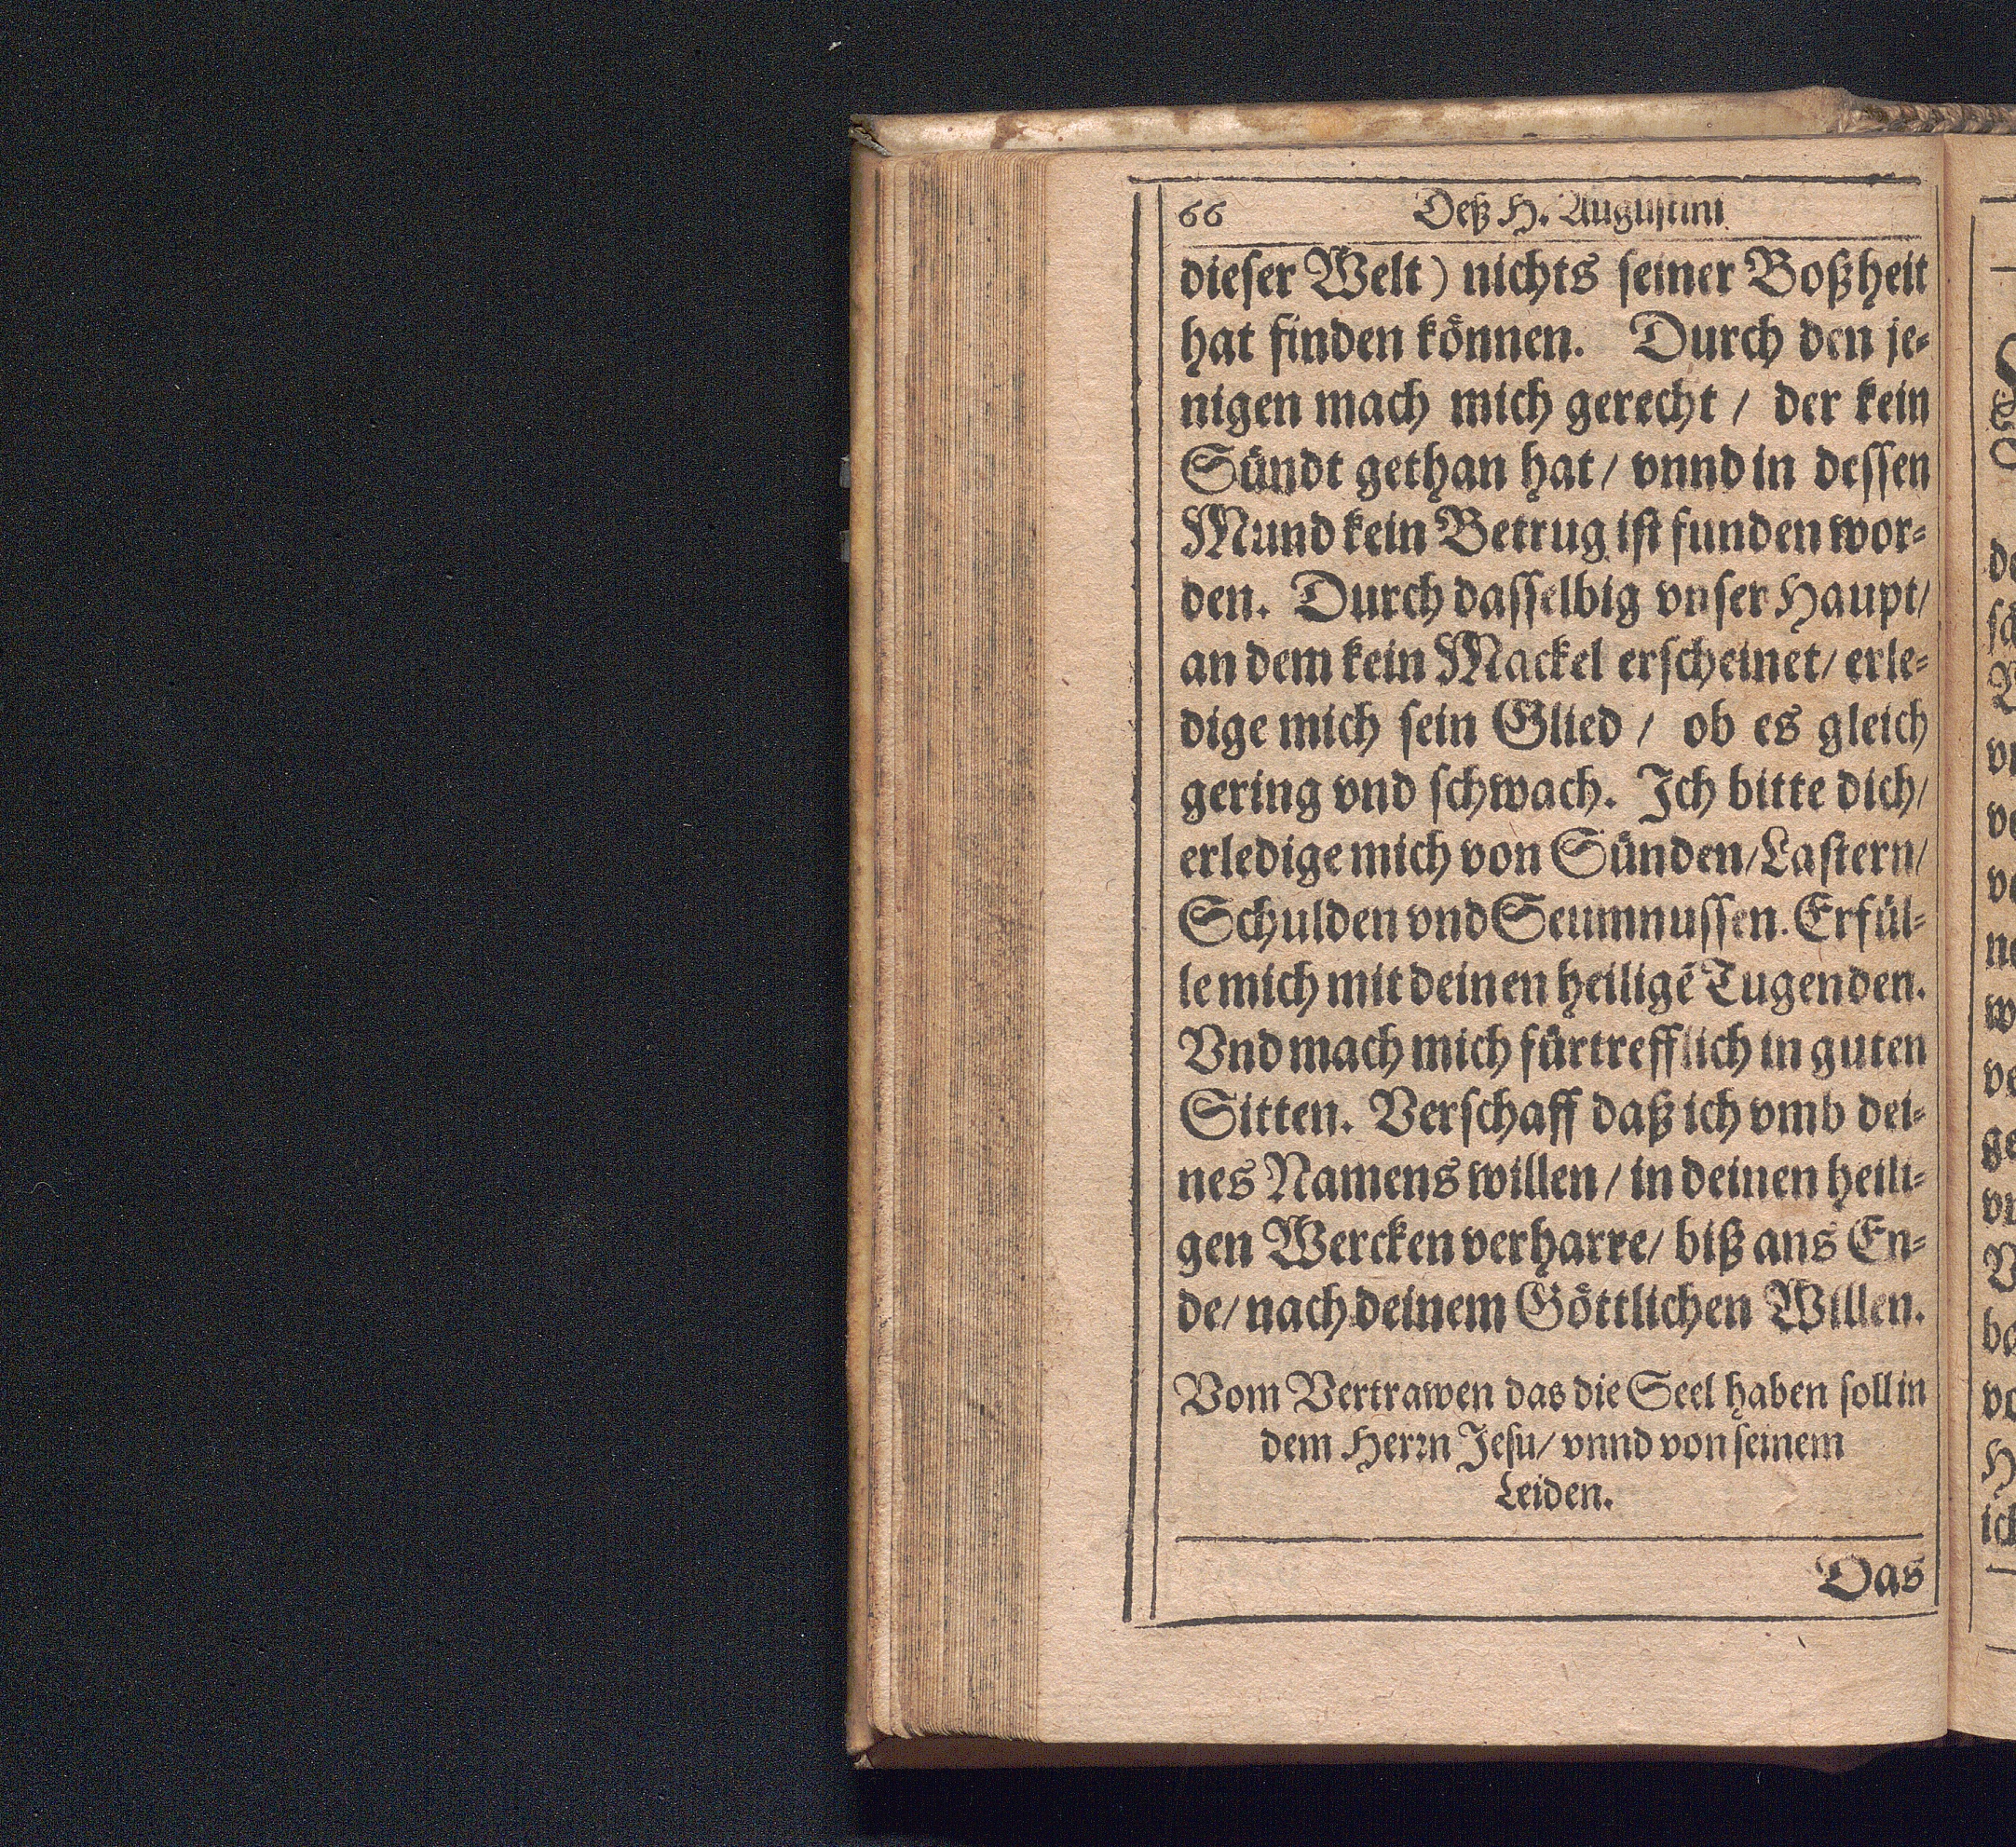 66 Deß H. Augustini
dieser Welt) nichts seiner Boßheit
hat finden können. Durch den je-
nigen mach mich gerecht / der kein
Sündt gethan hat / vnnd in dessen
Mund kein Betrug ist funden wor-
den. Durch dasselbig vnser Haupt /
an dem kein Mackel erscheinet / erle-
dige mich sein Glied / ob es gleich
gering vnd schwach. Ich bitte dich /
erledige mich von Sünden / Lastern /
Schulden vnd Seumnussen. Erfül-
le mich mit deinen heiligẽ Tugenden.
Vnd mach mich fürtrefflich in guten
Sitten. Verschaff daß ich vmb dei-
nes Namens willen / in deinen heili-
gen Wercken verharre / biß ans En-
de / nach deinem Göttlichen Willen.
Vom Vertrawen das die Seel haben soll in
dem Herrn Jesu / vnnd von seinem
Leiden.
Das